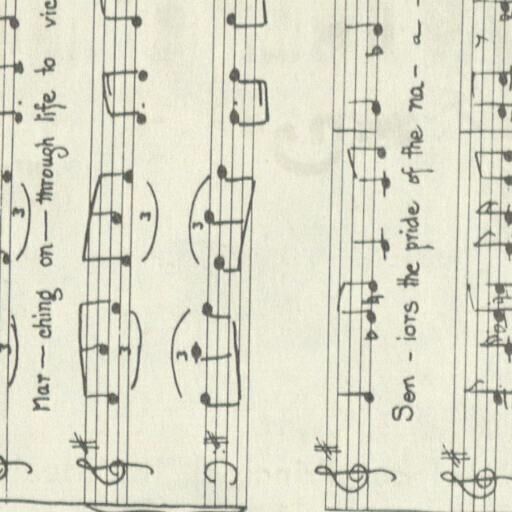 Mar - ching on - through life to vic
3 3
3 3
3 3
Sen - iors the pride of the na - a -